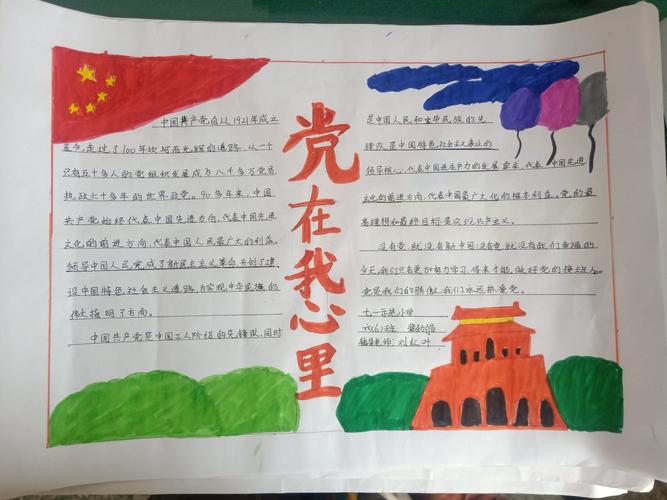 党在我心里
中国共产党自从1921年成立
至今,走过了100年坎坷而光辉的道路。从一个
只有五十多人的党组织发展成为八千多万党员,
执政六十多年的世界政党。90多年来,中国
共产党始终代表中国先进方向,代表中国先进
文化的前进方向,代表中国人民最广大的利益。
领导中国人民,完成了新民主主义革命,开创了建
设中国特色,社会主义道路,为实现中华民族的
伟大指明了方向。
中国共产党是中国工人阶级的先锋队,同时
是中国人民和中华民族的先
锋队,是中国特色,社会主义事业的
领导核心,代表中国先进生产力的发展要求,代表中国先进
文化的前进方向,代表中国最广大化的根本利益。党的最
高理想和最终目标是实现共产主义。
没有党,就没有新中国,没有党,就没有我们幸福的
今天,我们只有更加努力学习,将来才能,做好党的接班人。
党是我们的骄傲,我们永远热爱党。
七一示范小学
六(6)班
辅导老师:刘红叶